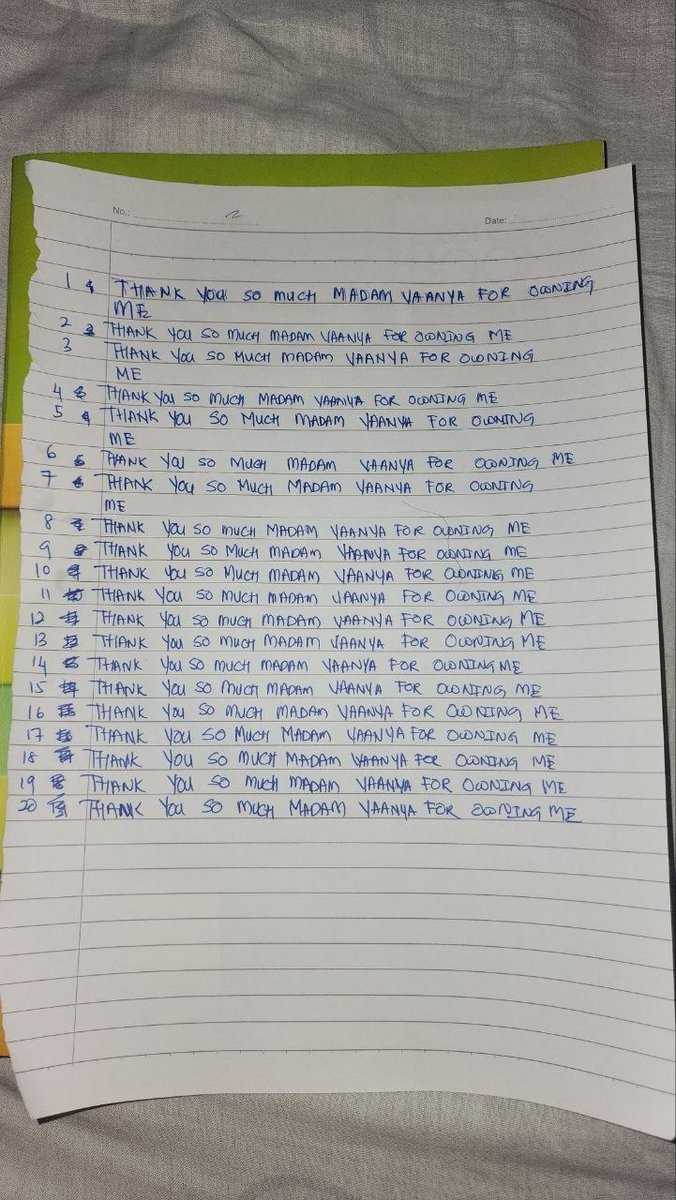 No.: 2 Date:
1 THANK YOU SO MUCH MADAM VAANYA FOR OWNING
ME
2 THANK YOU SO MUCH MADAM VAANYA FOR OWNING ME
3 THANK YOU SO MUCH MADAM VAANYA FOR OWNING
ME
4 THANK YOU SO MUCH MADAM VAANYA FOR OWNING ME
5 THANK YOU SO MUCH MADAM VAANYA FOR OWNING
ME
6 THANK YOU SO MUCH MADAM VAANYA FOR OWNING ME
7 THANK YOU SO MUCH MADAM VAANYA FOR OWNING
ME
8 THANK YOU SO MUCH MADAM VAANYA FOR OWNING ME
9 THANK YOU SO MUCH MADAM VAANYA FOR OWNING ME
10 THANK YOU SO MUCH MADAM VAANYA FOR OWNING ME
11 THANK YOU SO MUCH MADAM VAANYA FOR OWNING ME
12 THANK YOU SO MUCH MADAM VAANYA FOR OWNING ME
13 THANK YOU SO MUCH MADAM VAANYA FOR OWNING ME
14 THANK YOU SO MUCH MADAM VAANYA FOR OWNING ME
15 THANK YOU SO MUCH MADAM VAANYA FOR OWNING ME
16 THANK YOU SO MUCH MADAM VAANYA FOR OWNING ME
17 THANK YOU SO MUCH MADAM VAANYA FOR OWNING ME
18 THANK YOU SO MUCH MADAM VAANYA FOR OWNING ME
19 THANK YOU SO MUCH MADAM VAANYA FOR OWNING ME
20 THANK YOU SO MUCH MADAM VAANYA FOR OWNING ME